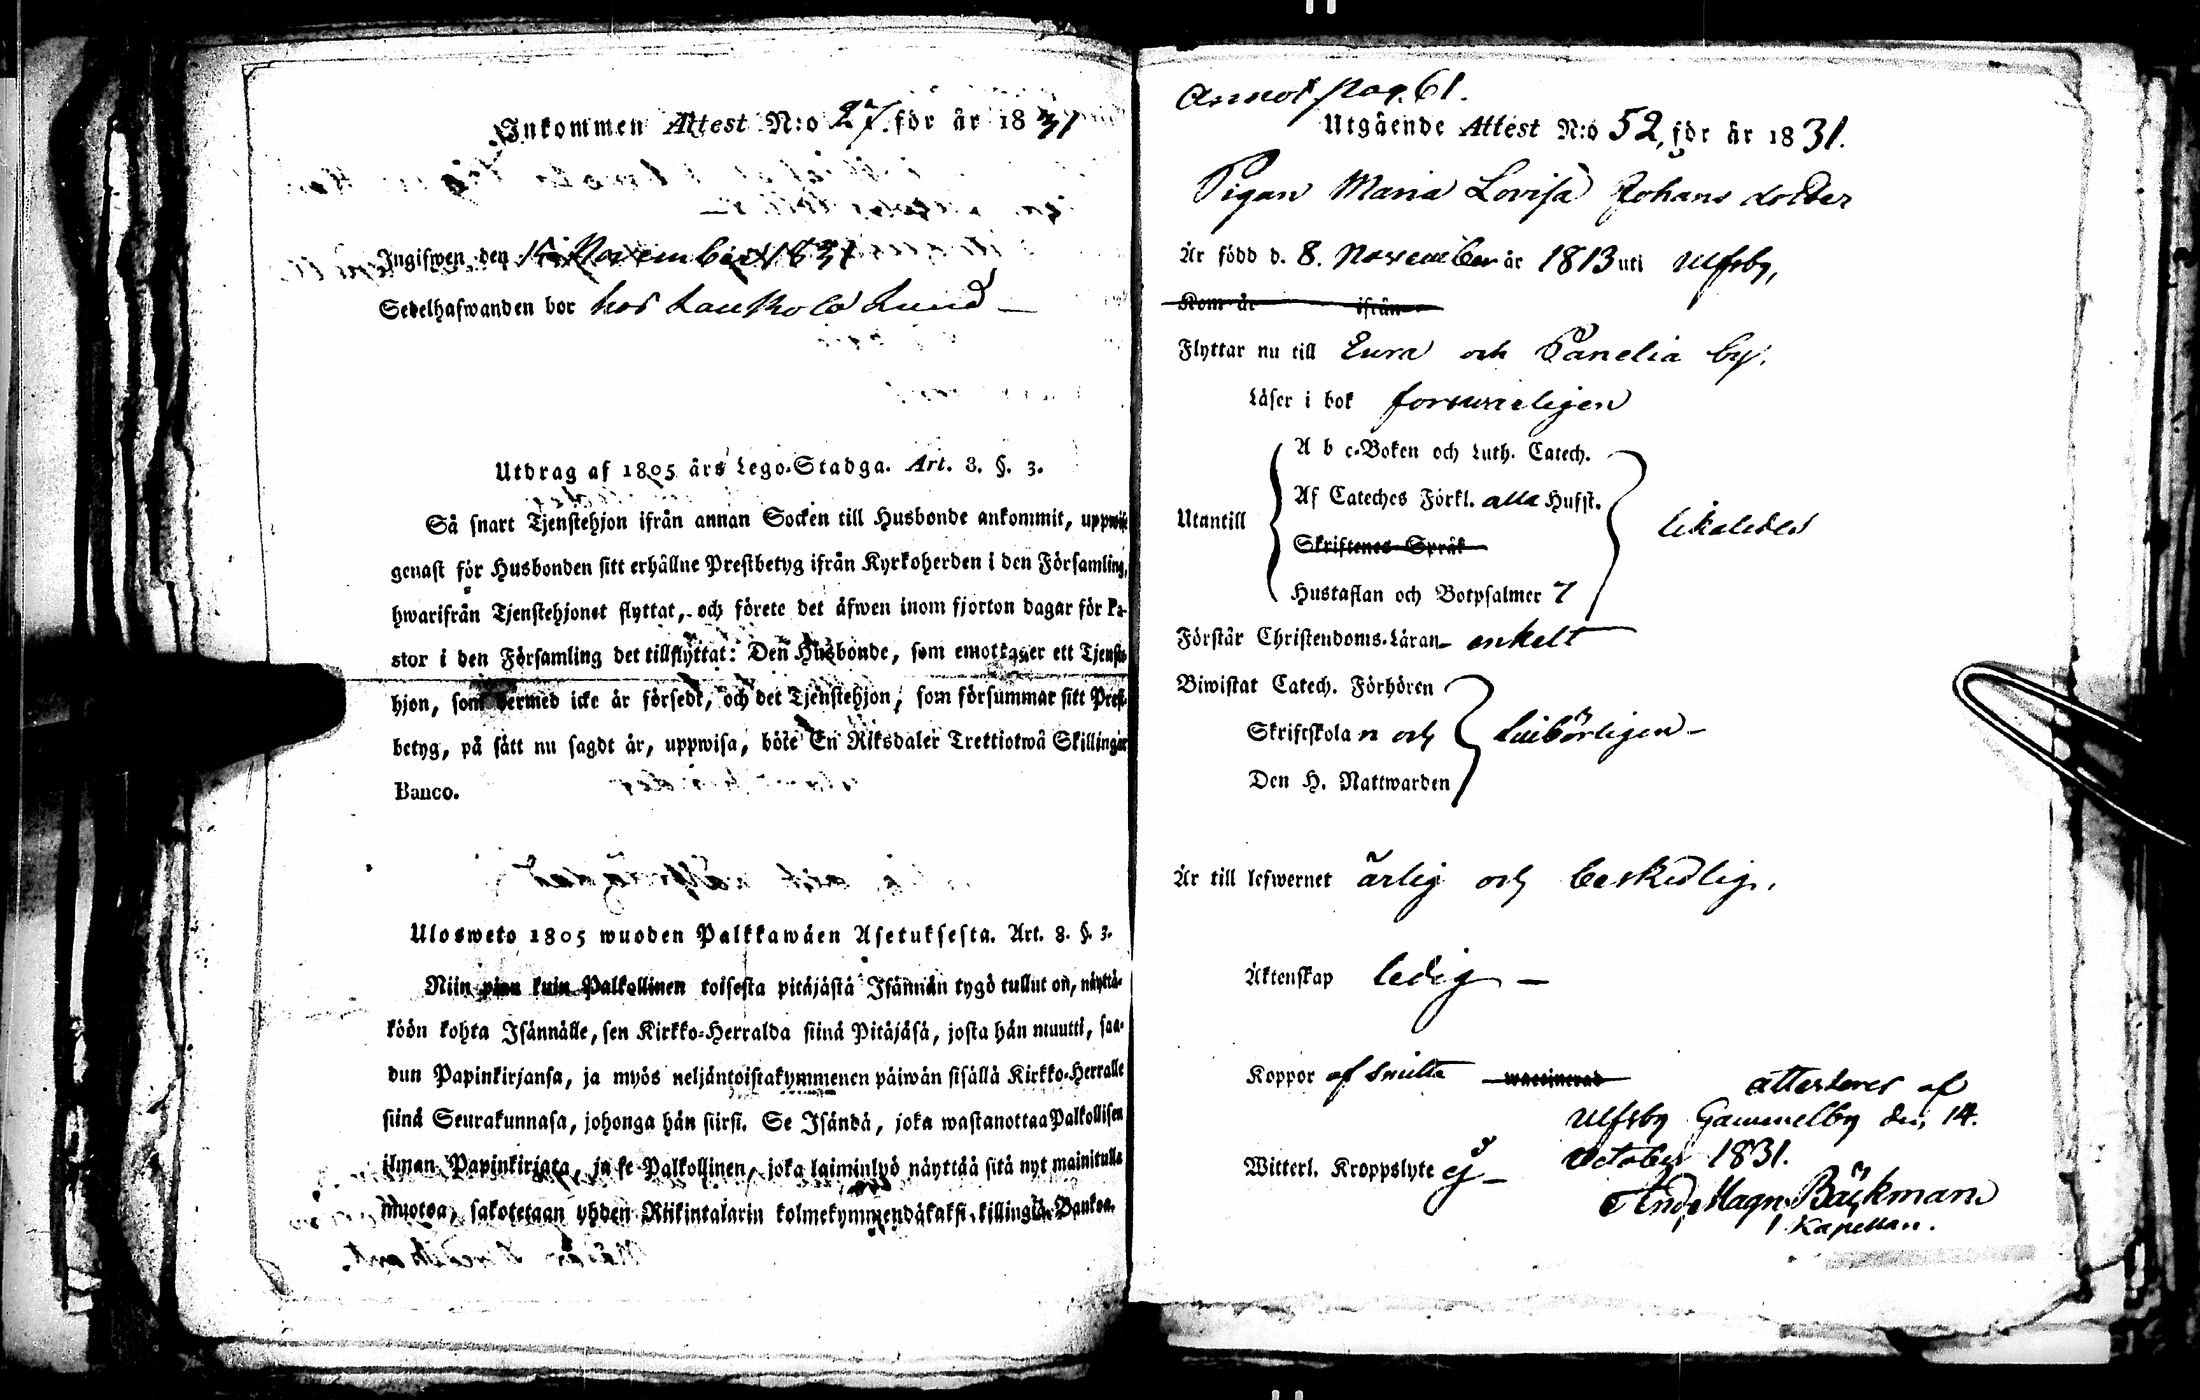 Inkommen Attest N:o 27. för år 1831
Ingifwen den 15 November 1831
Sedelhafwanden bor hos Lauskola Lund
Utdrag af 1805 års Lego-Stadga. Art. 8. §. 3.
Så snart Tjenstehjon ifrån annan Socken till Husbonde ankommit, uppwise
genast för Husbonden sitt erhållne Prestbetyg ifrån Kyrkoherden i den Församling,
hwarifrån Tjenstehjonet flyttat, och förete det äfwen inom fjorton dagar för Pa-
stor i den Församling det tillflyttat: Den Husbonde, som emottager ett Tjenste-
hjon, som dermed icke är försedt, och det Tjenstehjon, som försummar sitt Prest-
betyg, på sätt nu sagdt är, uppwisa, böte En Riksdaler Trettiotwå Skillingar
Banco.
Ulosweto 1805 wuoden Palkkawäen Asetuksesta. Art. 8. §. 3.
Niin pian kuin Palkollinen toisesta pitäjästä Isännän tygö tullut on, näyttä-
köön kohta Isännälle, sen Kirkko-Herralda siinä Pitäjäsä, josta hän muutti, saa-
dun Papinkirjansa, ja myös neljäntoistakymmenen päiwän sisällä Kirkko-Herralle
siinä Seurakunnasa, johonga hän siirsi. Se Isändä, joka wastanottaa Palkollisen
ilman Papinkirjata, ja se Palkollinen, joka laiminlyö näyttää sitä nyt mainitulla
muotoa, sakotetaan yhden Riikintalarin kolmekymmendäkaksi killingiä Bankoa.
Annot. pag. 61.
Utgående Attest N:o 52, för år 1831.
Pigan Maria Lovisa Johans dotter
Är född d. 8. November år 1813 uti Ulfsby,
Kom år ifrån
Flyttar nu till Eura och Panelia by.
Läser i bok försvarligen
A b c-Boken och Luth. Catech.
Af Cateches Förkl. alla Hufst.
Utantill likaledes
Skriftenes Språk
Hustaflan och Botpsalmer 7
Förstår Christendoms-Läran enkelt
Biwistat Catech. Förhören
Skriftskolan och behörligen
Den H. Nattwarden
Är till lefwernet ärlig och beskedlig.
Äktenskap ledig
Koppor af smitta waccinerad
attesteras af
Ulfsby Gammelby den 14.
October 1831.
Witterl. Kroppslyte ej
And. Magn. Bäckman
Kapellan.